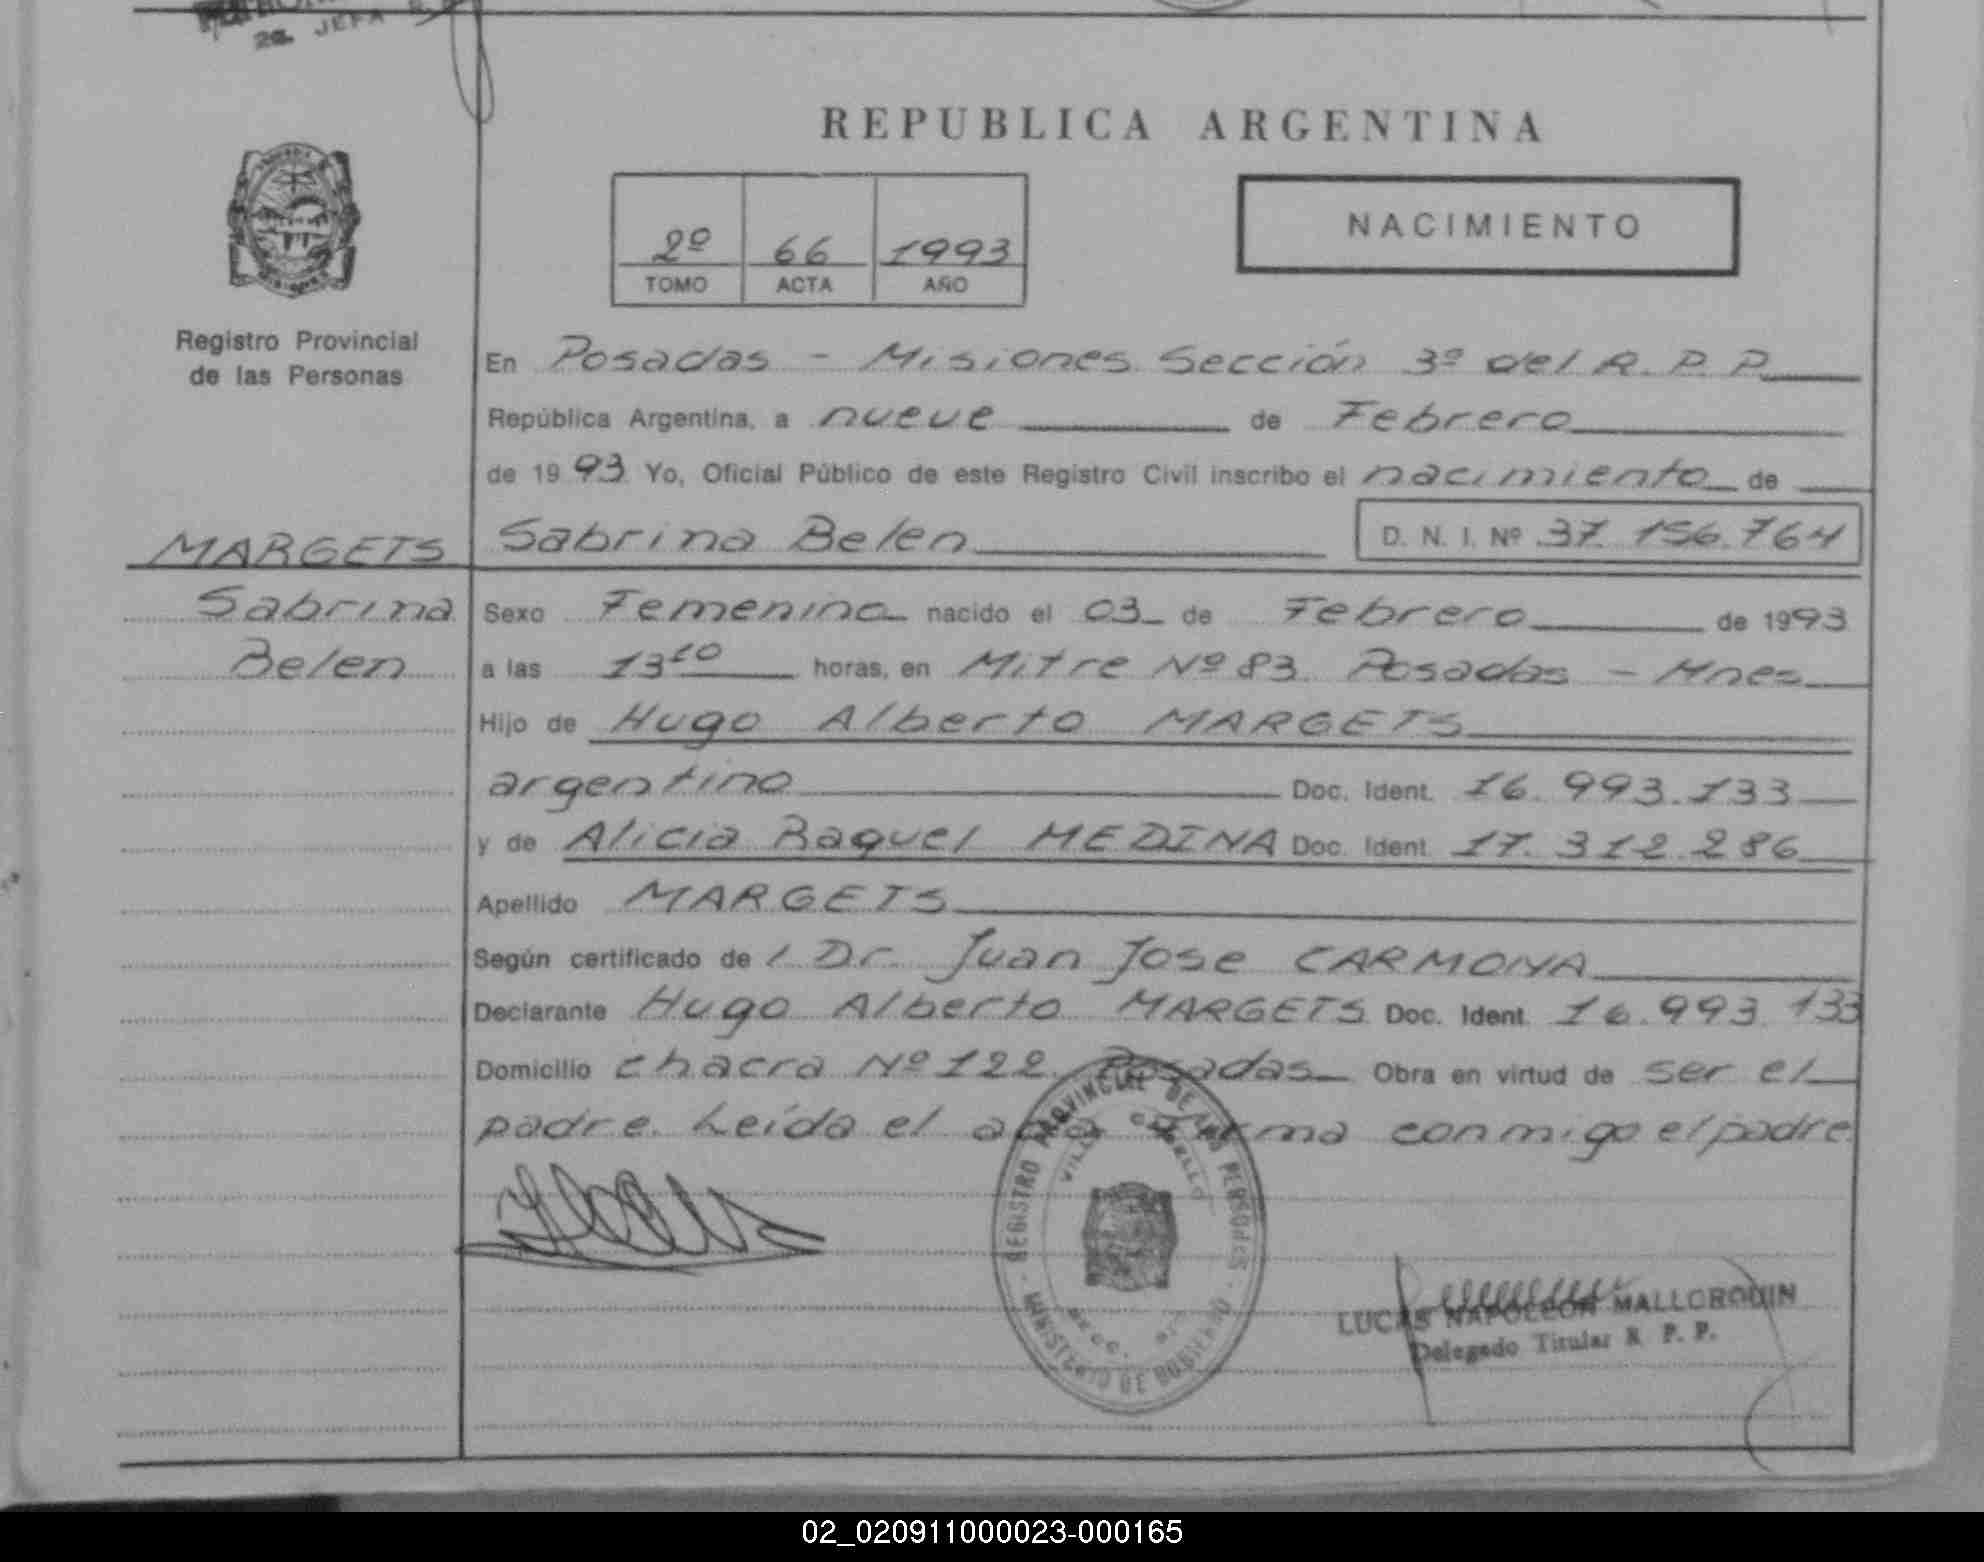 2a. JEFA
REPUBLICA ARGENTINA
NACIMIENTO
2º 66 1993
TOMO ACTA AÑO
Registro Provincial
de las Personas
En Posadas - Misiones Sección 3º del R. P. P.
República Argentina, a nueve de Febrero
de 1993 Yo, Oficial Público de este Registro Civil inscribo el nacimiento de
MARGETS Sabrina Belen D. N. I. Nº 37.156.764
Sabrina Sexo Femenino nacido el 03 de Febrero de 1993
Belen a las 13 horas, en Mitre Nº 83 Posadas - Mnes
Hijo de Hugo Alberto MARGETS
argentino Doc. Ident. 16.993.133
y de Alicia Raquel MEDINA Doc. Ident. 17.312.286
Apellido MARGETS
Según certificado de l Dr. Juan Jose CARMONA
Declarante Hugo Alberto MARGETS Doc. Ident. 16.993.133
Domicilio chacra Nº 122 Posadas Obra en virtud de ser el
padre. Leída el acta Firma conmigo el padre
REGISTRO PROVINCIAL DE LAS PERSONAS
MINISTERIO DE GOBIERNO
LUCAS NAPOLEON MALLORQUIN
Delegado Titular R. P. P.
02_020911000023-000165